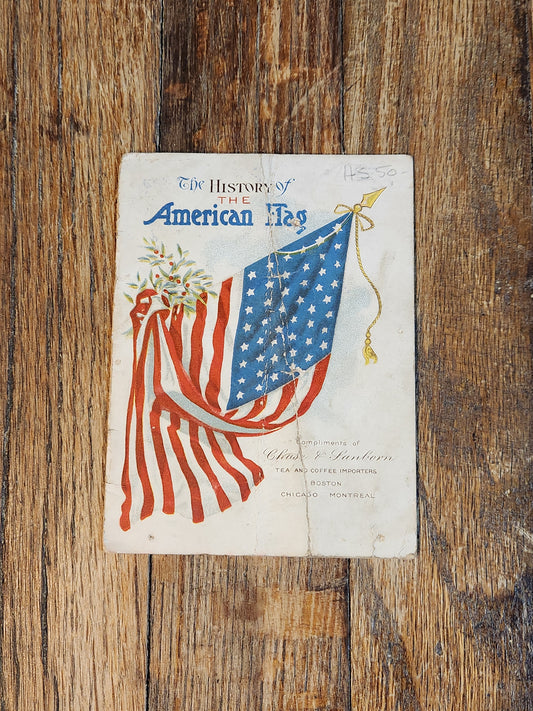 The HISTORY of
THE
American Flag
Compliments of
Chase & Sanborn
TEA AND COFFEE IMPORTERS
BOSTON
CHICAGO MONTREAL